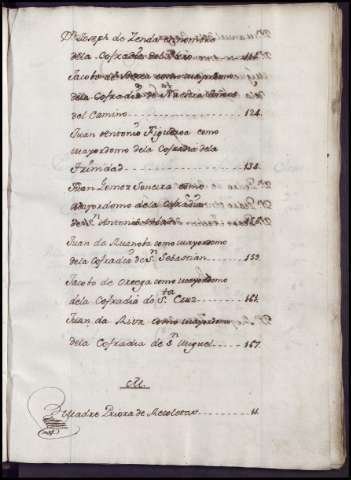 Dn. Joseph de Zenda en nombre
dela Cofradia del
Jacoto de como mayordomo
dela Cofradia de Nuestra Señora
del Camino 124.
Juan Antonio Figueroa como
mayordomo dela Cofradia dela
Trinidad 134.
Juan Lemos Soneira como
Mayordomo dela Cofradia
de Sn. Antonio Abad
Juan da Ruanoba como mayordomo
dela Cofradia de Sn. Sebastian 153.
Jacoto de Ortega como mayordomo
dela Cofradia de Sta. Cruz 161.
Juan da Riva como mayordomo
dela Cofradia de Sn. Miguel 167.
M.
Madre Priora de